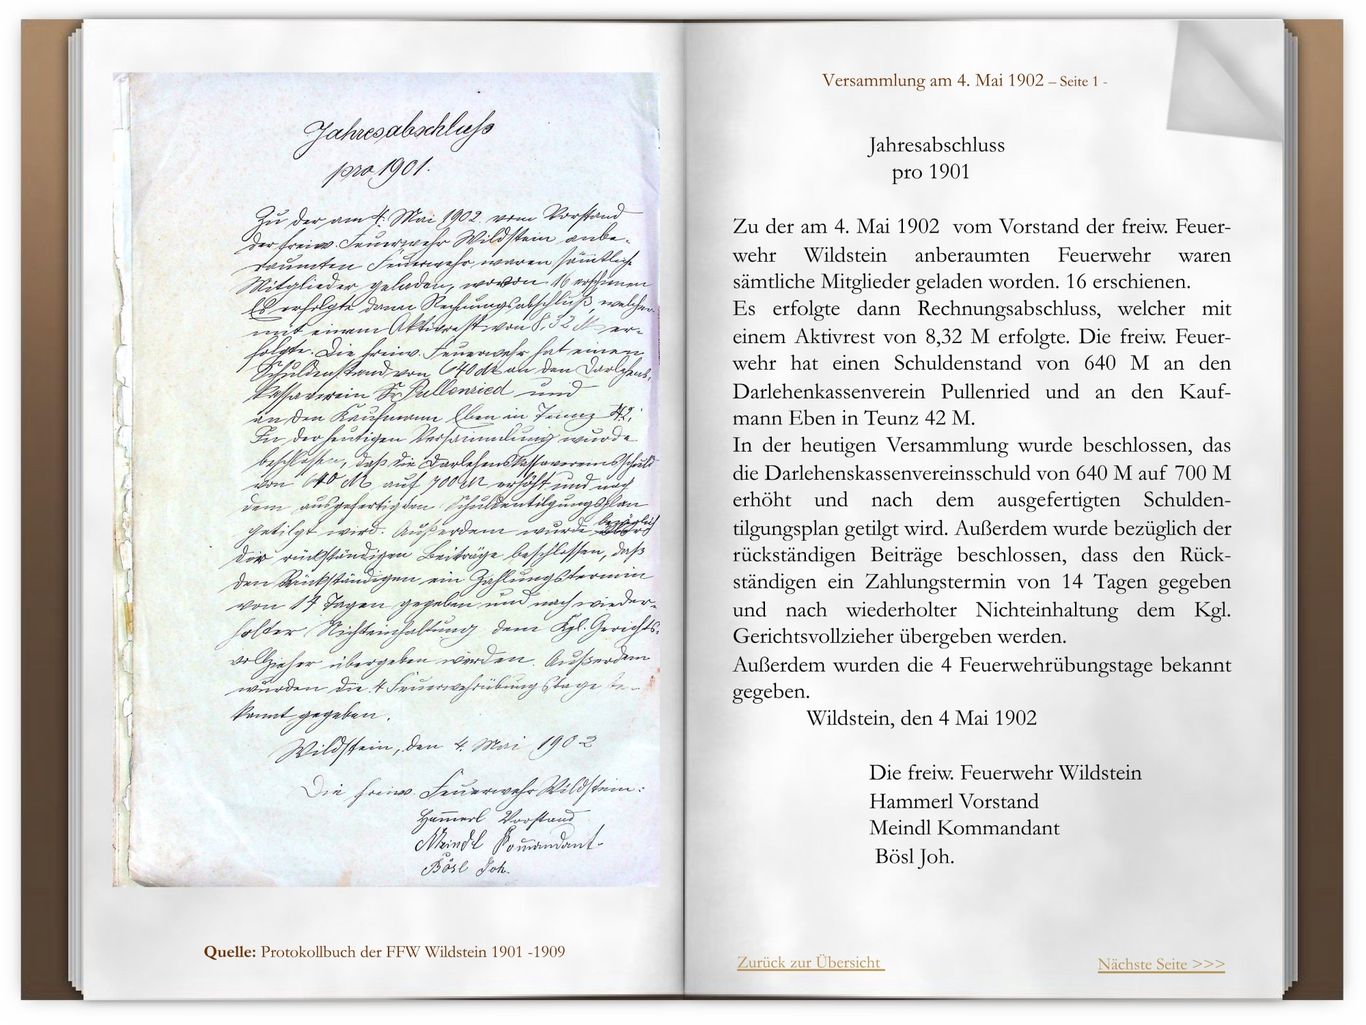 Jahresabschluss
pro 1901.
Zu der am 4. Mai 1902. vom Vorstand
der freiw. Feuerwehr Wildstein anbe-
raumten Feuerwehr waren sämtliche
Mitglieder geladen, wovon 16 erschienen
Es erfolgte dann Rechnungsabschluß, welcher
mit einem Aktivrest von 8,32 M er-
folgte. Die freiw. Feuerwehr hat einen
Schuldenstand von 640 M an den Darlehens-
kassaverein Pullenried und
an den Kaufmann Eben in Teunz 42.
In der heutigen Versammlung wurde
beschlossen, daß die Darlehenskassavereinsschuld
von 640 M auf 700 M erhöht und nach
dem ausgefertigten Schuldentilgungsplan
getilgt wird. Außerdem wurde bezüglich
der rückständigen Beiträge beschlossen, daß
den Rückständigen ein Zahlungstermin
von 14 Tagen gegeben und nach wieder-
holter Nichteinhaltung dem Kgl. Gerichts-
vollzieher übergeben werden. Außerdem
wurden die 4 Feuerwehrübungstage be-
kannt gegeben.
Wildstein, den 4. Mai 1902
Die freiw. Feuerwehr Wildstein:
Hammerl Vorstand
Meindl Komandant.
Bösl Joh.
Quelle: Protokollbuch der FFW Wildstein 1901 -1909
Versammlung am 4. Mai 1902 – Seite 1 -
Jahresabschluss
pro 1901
Zu der am 4. Mai 1902 vom Vorstand der freiw. Feuer-
wehr Wildstein anberaumten Feuerwehr waren
sämtliche Mitglieder geladen worden. 16 erschienen.
Es erfolgte dann Rechnungsabschluss, welcher mit
einem Aktivrest von 8,32 M erfolgte. Die freiw. Feuer-
wehr hat einen Schuldenstand von 640 M an den
Darlehenkassenverein Pullenried und an den Kauf-
mann Eben in Teunz 42 M.
In der heutigen Versammlung wurde beschlossen, das
die Darlehenskassenvereinsschuld von 640 M auf 700 M
erhöht und nach dem ausgefertigten Schulden-
tilgungsplan getilgt wird. Außerdem wurde bezüglich der
rückständigen Beiträge beschlossen, dass den Rück-
ständigen ein Zahlungstermin von 14 Tagen gegeben
und nach wiederholter Nichteinhaltung dem Kgl.
Gerichtsvollzieher übergeben werden.
Außerdem wurden die 4 Feuerwehrübungstage bekannt
gegeben.
Wildstein, den 4 Mai 1902
Die freiw. Feuerwehr Wildstein
Hammerl Vorstand
Meindl Kommandant
Bösl Joh.
Zurück zur Übersicht
Nächste Seite >>>